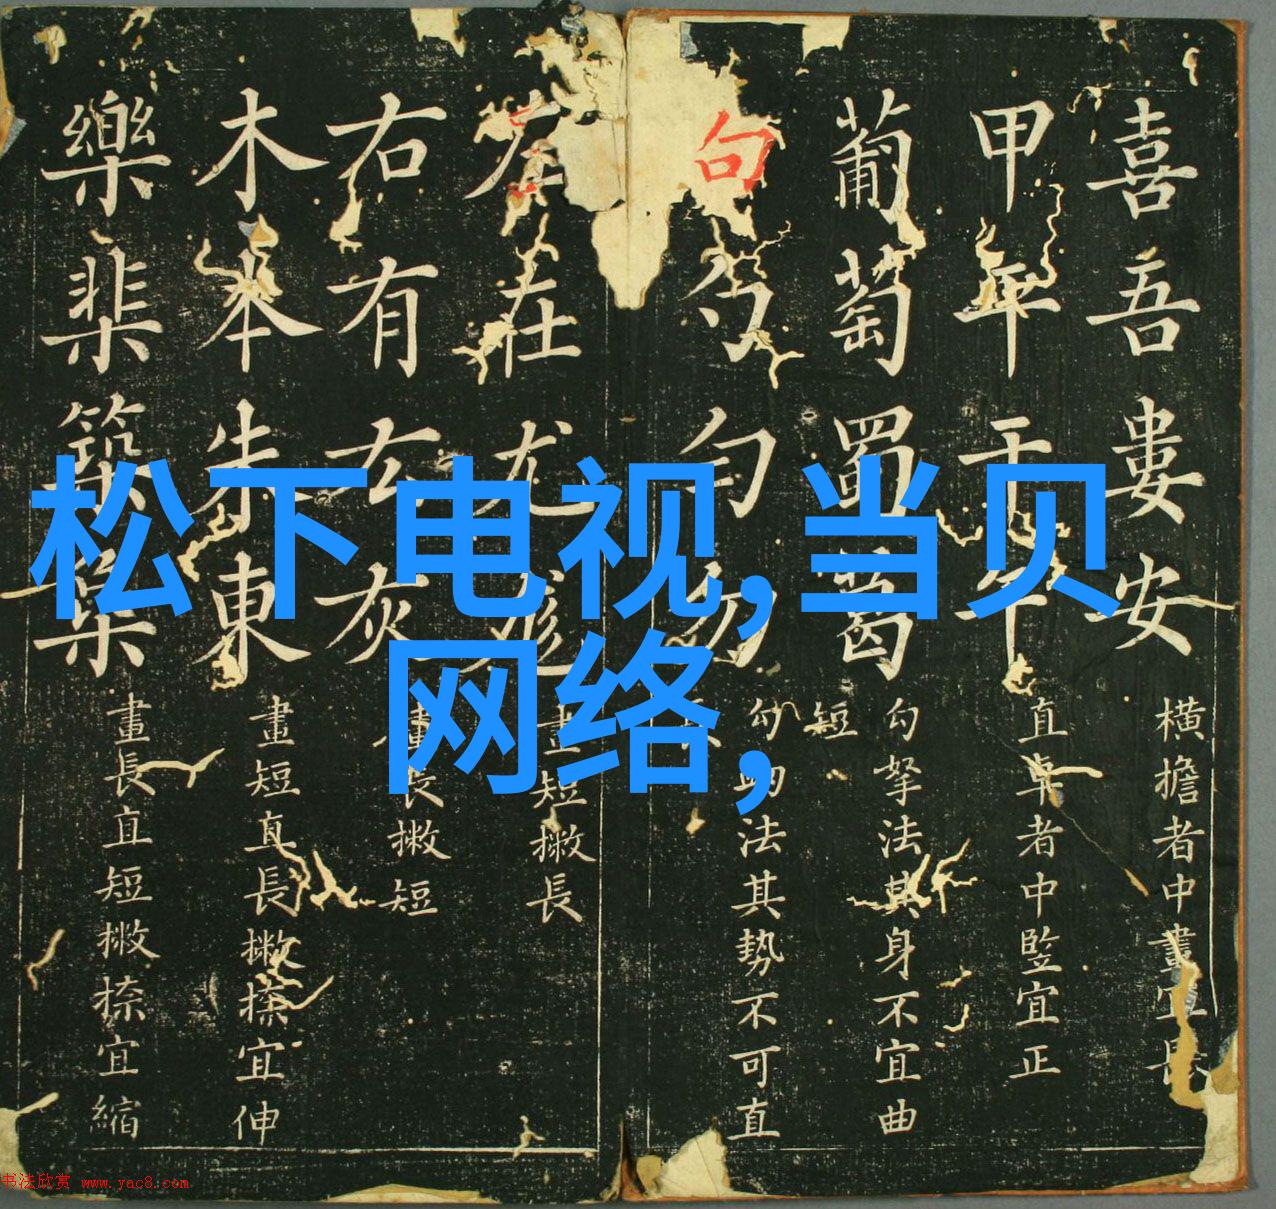 松下电视,当贝
网络,
喜吾婁安
横擔者中畫宜長
甲平干午
直卓者中竪宜正
葡萄蜀葛
勾拏法其身不宜曲
短
句勺匀勿
勾法其势不可直
左在尤尨
畫短撇長
右有灰
畫長撇短
木本朱東
畫短直長撇捺宜伸
樂棐築
畫長直短撇捺宜縮
书法欣赏 www.yac8.com